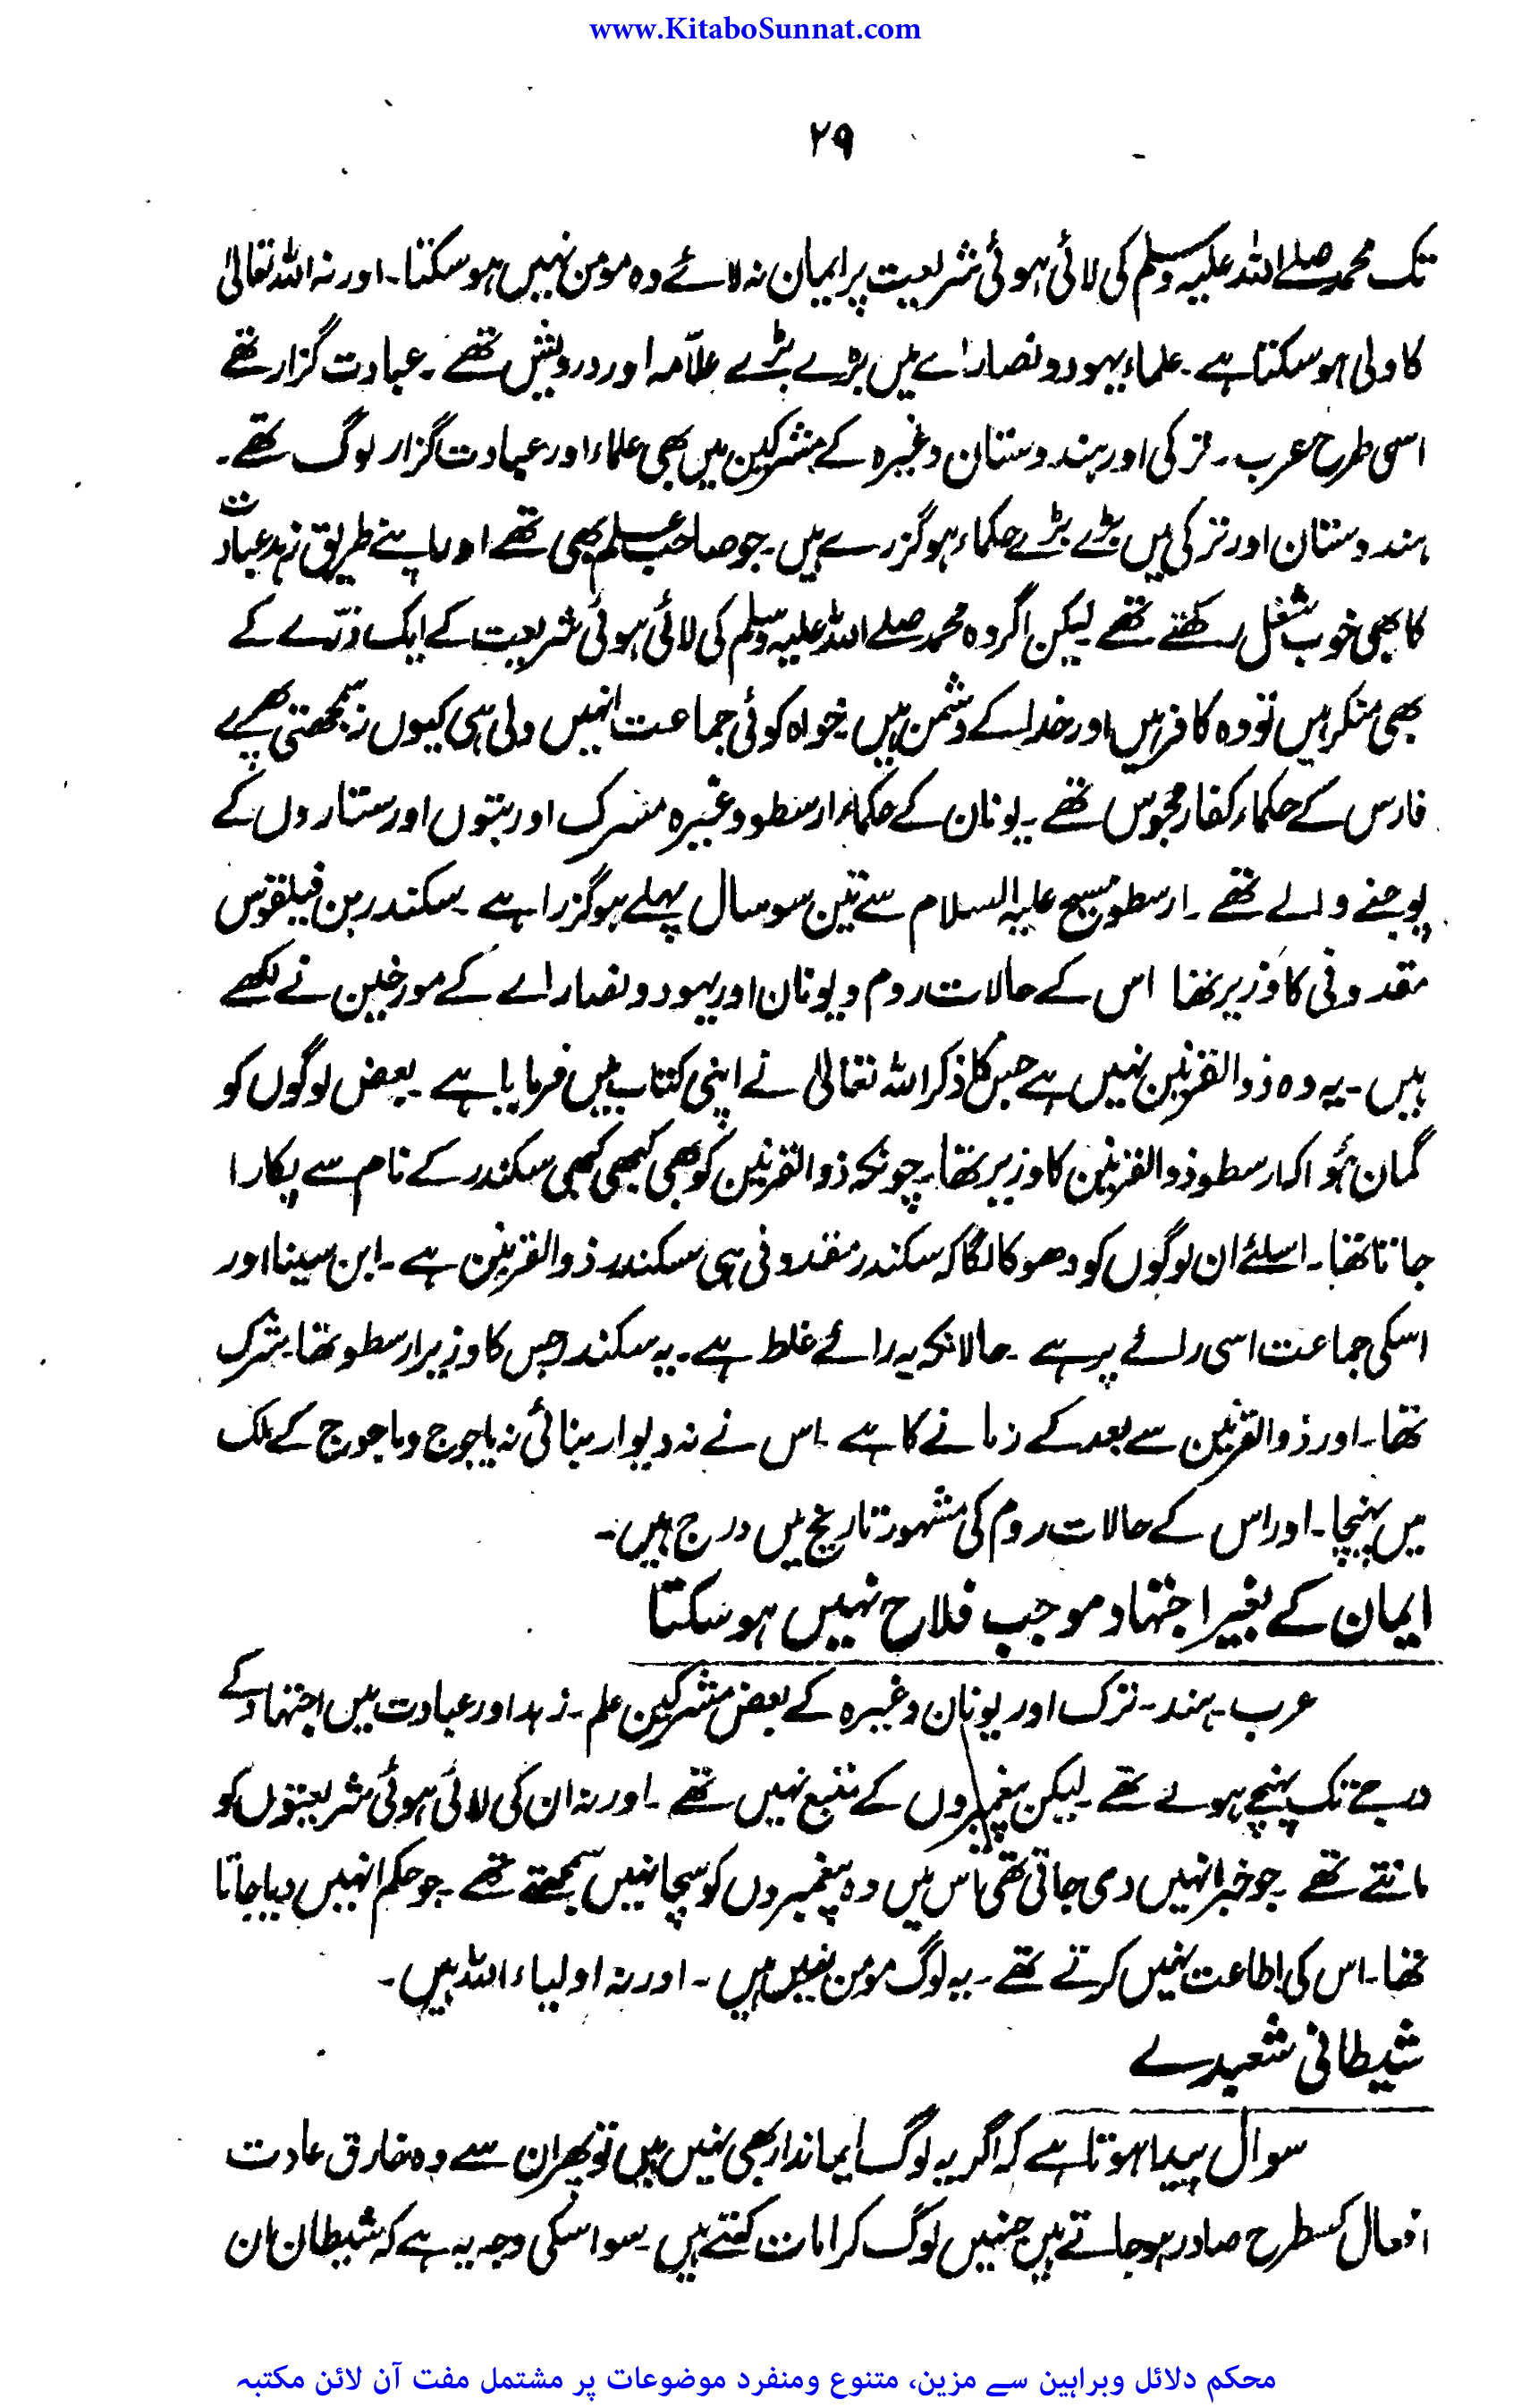 www.KitaboSunnat.com
۲۹
تک محمد صلے اللہ علیہ وسلم کی لائی ہوئی شریعت پر ایمان نہ لائے وہ مومن نہیں ہو سکتا۔ اور نہ اللہ تعالیٰ
کا ولی ہو سکتا ہے۔ علماء یہود و نصارا‎ے میں بڑے بڑے علاّمہ اور درویش تھے۔ عبادت گزار تھے
اسی طرح عرب۔ ترکی اور ہندوستان وغیرہ کے مشرکین میں بھی علماء اور عبادت گزار لوگ تھے۔
ہندوستان اور ترکی میں بڑے بڑے حکماء ہو گزرے ہیں۔ جو صاحب علم بھی تھے اور اپنے طریق زہد عبادت
کا بھی خوب شغل رکھتے تھے لیکن اگر وہ محمد صلے اللہ علیہ وسلم کی لائی ہوئی شریعت کے ایک ذرّے کے
بھی منکر ہیں تو وہ کافر ہیں اور خدا کے دشمن ہیں۔ خواہ کوئی جماعت انہیں ولی ہی کیوں نہ سمجھتی پھرے
فارس کے حکماء کفار مجوس تھے۔ یونان کے حکماء ارسطو وغیرہ مشرک اور بتوں اور ستاروں کے
پوجنے والے تھے۔ ارسطو مسیح علیہ السلام سے تین سو سال پہلے ہو گزرا ہے۔ سکندر بن فیلقوس
مقدونی کا وزیر تھا اس کے حالات روم و یونان اور یہود و نصارا‎ے کے مورخین نے لکھے
ہیں۔ یہ وہ ذوالقرنین نہیں ہے جس کا ذکر اللہ تعالیٰ نے اپنی کتاب میں فرمایا ہے۔ بعض لوگوں کو
گمان ہؤا کہ ارسطو ذوالقرنین کا وزیر تھا۔ چونکہ ذوالقرنین کو بھی کبھی کبھی سکندر کے نام سے پکارا
جاتا تھا۔ اسلئے ان لوگوں کو دھوکا لگا کہ سکندر مقدونی ہی سکندر ذوالقرنین ہے۔ ابن سینا اور
اسکی جماعت اسی رائے پر ہے۔ حالانکہ یہ رائے غلط ہے۔ یہ سکندر جس کا وزیر ارسطو تھا۔ مشرک
تھا۔ اور ذوالقرنین سے بعد کے زمانے کا ہے۔ اس نے نہ دیوار بنائی نہ یاجوج و ماجوج کے ملک
میں پہنچا۔ اور اس کے حالات روم کی مشہور تاریخ میں درج ہیں۔
ایمان کے بغیر اجتہاد موجب فلاح نہیں ہو سکتا
عرب۔ ہند۔ ترک اور یونان وغیرہ کے بعض مشرکین علم۔ زہد اور عبادت میں اجتہاد کے
درجے تک پہنچے ہوئے تھے۔ لیکن پیغمبروں کے متبع نہیں تھے۔ اور نہ ان کی لائی ہوئی شریعتوں کو
مانتے تھے۔ جو خبر انہیں دی جاتی تھی اس میں وہ پیغمبروں کو سچا نہیں سمجھتے تھے۔ جو حکم انہیں دیا جاتا
تھا۔ اس کی اطاعت نہیں کرتے تھے۔ یہ لوگ مومن نہیں ہیں۔ اور نہ اولیاء اللہ ہیں۔
شیطانی شعبدے
سوال پیدا ہوتا ہے کہ اگر یہ لوگ ایماندار بھی نہیں ہیں تو پھر ان سے وہ خارق عادت
افعال کسطرح صادر ہو جاتے ہیں جنہیں لوگ کرامات کہتے ہیں۔ سو اسکی وجہ یہ ہے کہ شیطان ان
محکم دلائل وبراہین سے مزین، متنوع ومنفرد موضوعات پر مشتمل مفت آن لائن مکتبہ